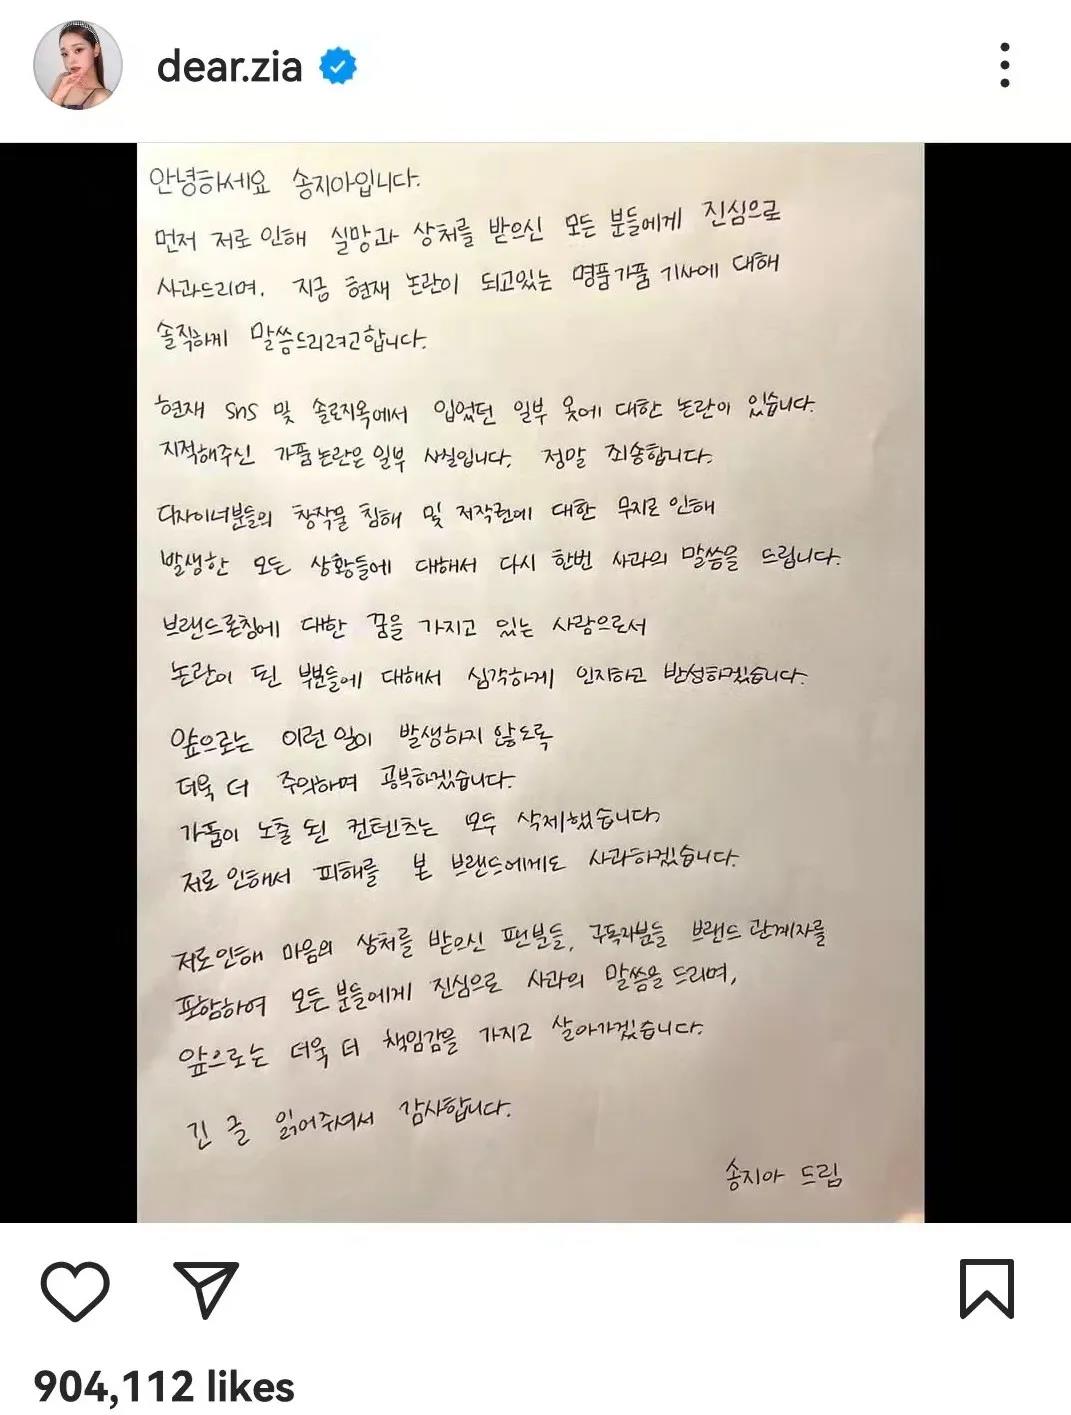 dear.zia
안녕하세요 송지아입니다.
먼저 저로 인해 실망과 상처를 받으신 모든 분들에게 진심으로
사과드리며, 지금 현재 논란이 되고있는 명품가품 기사에 대해
솔직하게 말씀드리려고합니다.
현재 SNS 및 솔로지옥에서 입었던 일부 옷에 대한 논란이 있습니다.
지적해주신 가품논란은 일부 사실입니다. 정말 죄송합니다.
디자이너분들의 창작물 침해 및 저작권에 대한 무지로 인해
발생한 모든 상황들에 대해서 다시 한번 사과의 말씀을 드립니다.
브랜드론칭에 대한 꿈을 가지고 있는 사람으로서
논란이 된 부분들에 대해서 심각하게 인지하고 반성하겠습니다.
앞으로는 이런 일이 발생하지 않도록
더욱 더 주의하며 공부하겠습니다.
가품이 노출 된 컨텐츠는 모두 삭제했습니다.
저로 인해서 피해를 본 브랜드에게도 사과하겠습니다.
저로인해 마음의 상처를 받으신 팬분들, 구독자분들 브랜드 관계자를
포함하여 모든 분들에게 진심으로 사과의 말씀을 드리며,
앞으로는 더욱 더 책임감을 가지고 살아가겠습니다.
긴 글 읽어주셔서 감사합니다.
송지아 드림
904,112 likes